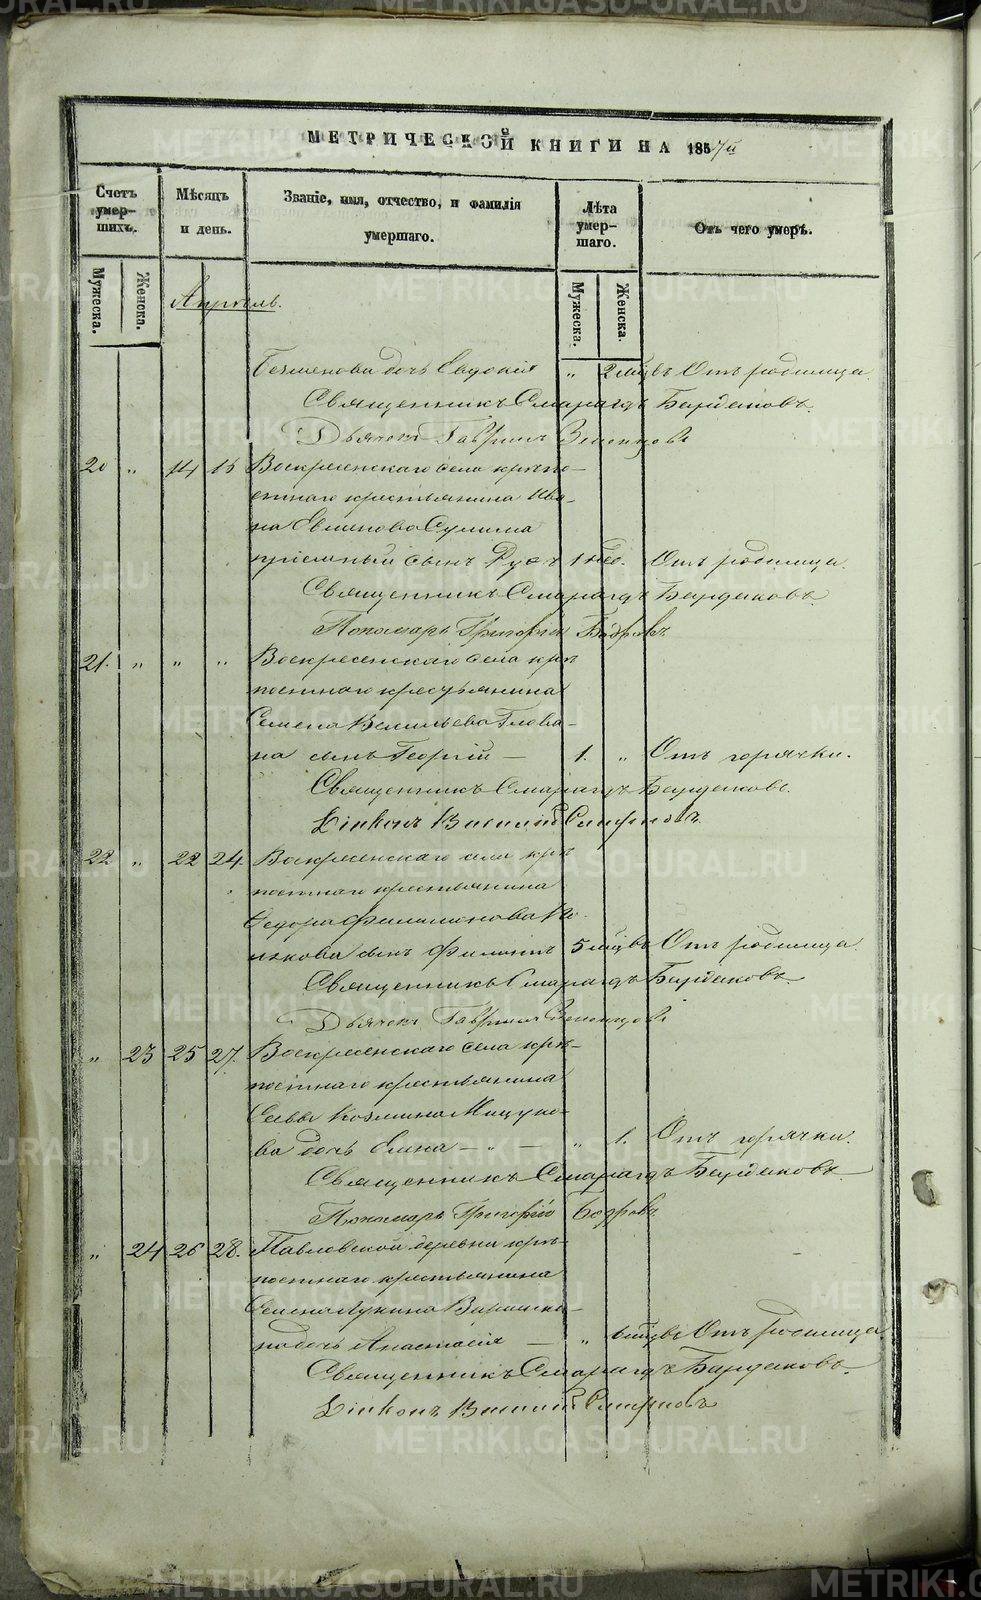 МЕТРИЧЕСКОЙ КНИГИ НА 1857й
Счетъ умер-шихъ.
Мѣсяцъ и день.
Званіе, имя, отчество, и фамилія умершаго.
Лѣта умер-шаго.
Отъ чего умерѣ.
Мужеска. Женска.
Мужеска. Женска.
Апрѣль.
дочь Евдокія „ 2 мѣцъ Отъ родимца.
Священникъ Смарагдъ Бардаковъ.
Дьячекъ Гавріилъ
20 „ 14 15 Воскресенскаго села крѣпо-
стнаго крестьянина Ива-
на Сулина
пріемный сынъ 1 нед. Отъ родимца.
Священникъ Смарагдъ Бардаковъ
Пономарь Григорій Бодровъ
21. „ „ „ Воскресенскаго села крѣ
постнаго крестьянина
Семена Васильева Глова-
на сынъ Георгій — 1. „ Отъ горячки.
Священникъ Смарагдъ Бардаковъ.
Діаконъ Василій Смирновъ
22 „ 22 24 Воскресенскаго села крѣ
постнаго крестьянина
Федора Филимонова
сынъ 5 мѣцъ Отъ родимца.
Священникъ Смарагдъ Бардаковъ
Дьячекъ Гавріилъ
„ 23 25 27. Воскресенскаго села крѣ-
постнаго крестьянина
Савы Козмина
ва дочь — „ — „ 1. Отъ горячки.
Священникъ Смарагдъ Бардаковъ
Пономарь Григорій Бодровъ
„ 24 26 28. Павловской деревни крѣ-
постнаго крестьянина
Семена Лукина
на дочь Анастасія — „ мѣцъ Отъ родимца.
Священникъ Смарагдъ Бардаковъ.
Діаконъ Василій Смирновъ
METRIKI.GASO-URAL.RU